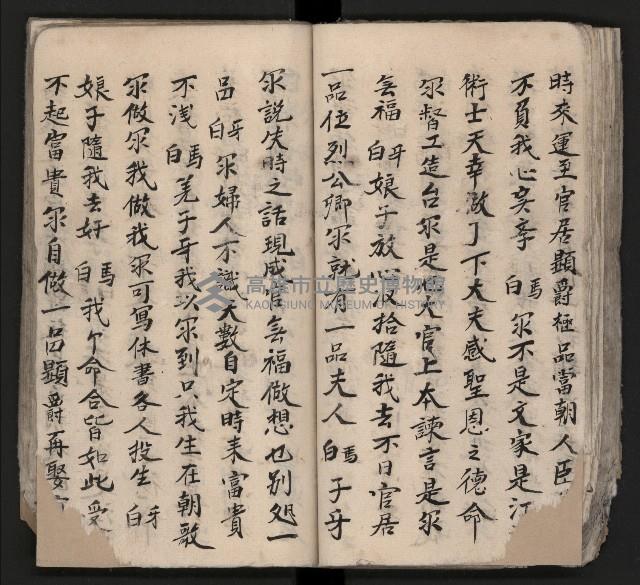 時來運至官居顯爵極品當朝人臣
不負我心矣 馬白 尔不是文家是江
術士天幸做了下大夫感聖恩之德命
尔督工造台尔是何大官上本諫言是尔
無福 牙白 娘子放心收拾隨我去不日官居
一品位烈公卿尔就有一品夫人 馬白 子牙
尔說失時之話現成官無福做想乜別処一
品 牙白 尔婦人不識天數自定時来富貴
不浅 馬白 姜子牙我以尔到只我生在朝歌
尔做尔我做我尔可寫休書各人投生 牙白
娘子隨我去好 馬白 我个命合皆如此受
不起富貴尔自做一品顯爵再娶
高雄市立歷史博物館
KAOHSIUNG MUSEUM OF HISTORY